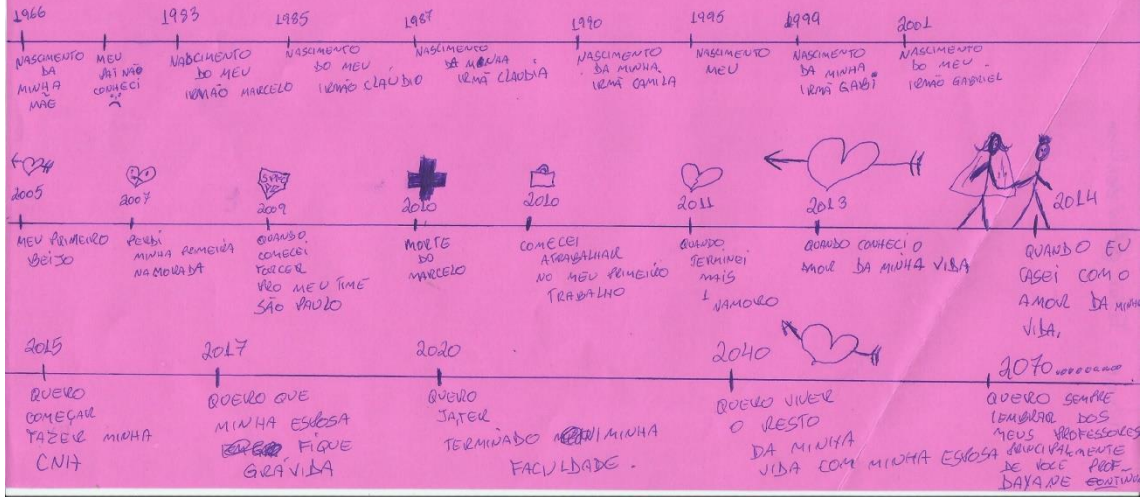 1966
NASCIMENTO
DA
MINHA
MÃE
MEU
PAI NÃO
CONHECI
1983
NASCIMENTO
DO MEU
IRMÃO MARCELO
1985
NASCIMENTO
DO MEU
IRMÃO CLAÚDIO
1987
NASCIMENTO
DA MINHA
IRMÃ CLAUDIA
1990
NASCIMENTO
DA MINHA
IRMÃ CAMILA
1996
NASCIMENTO
MEU
1999
NASCIMENTO
DA MINHA
IRMÃ GABI
2001
NASCIMENTO
DO MEU
IRMÃO GABRIEL
2005
MEU PRIMEIRO
BEIJO
2007
PERDI
MINHA PRIMEIRA
NAMORADA
SPFC
2009
QUANDO
COMECEI
TORCER
PRO MEU TIME
SÃO PAULO
2010
MORTE
DO
MARCELO
2010
COMECEI
ATRABALHAR
NO MEU PRIMEIRO
TRABALHO
2011
QUANDO
TERMINEI
MAIS
1
NAMORO
2013
QUANDO CONHECI O
AMOR DA MINHA VIDA
2014
QUANDO EU
CASEI COM O
AMOR DA MINHA
VIDA.
2015
QUERO
COMEÇAR
FAZER MINHA
CNH
2017
QUERO QUE
MINHA ESPOSA
FIQUE
GRÁVIDA
2020
QUERO
JA,TER
TERMINADO MINHA
FACULDADE.
2040
QUERO VIVER
O RESTO
DA MINHA
VIDA COM MINHA ESPOSA
2070.........
QUERO SEMPRE
LEMBRAR DOS
MEUS PROFESSORES
PRINCIPALMENTE
DE VOCÊ PROF_
DAYANE